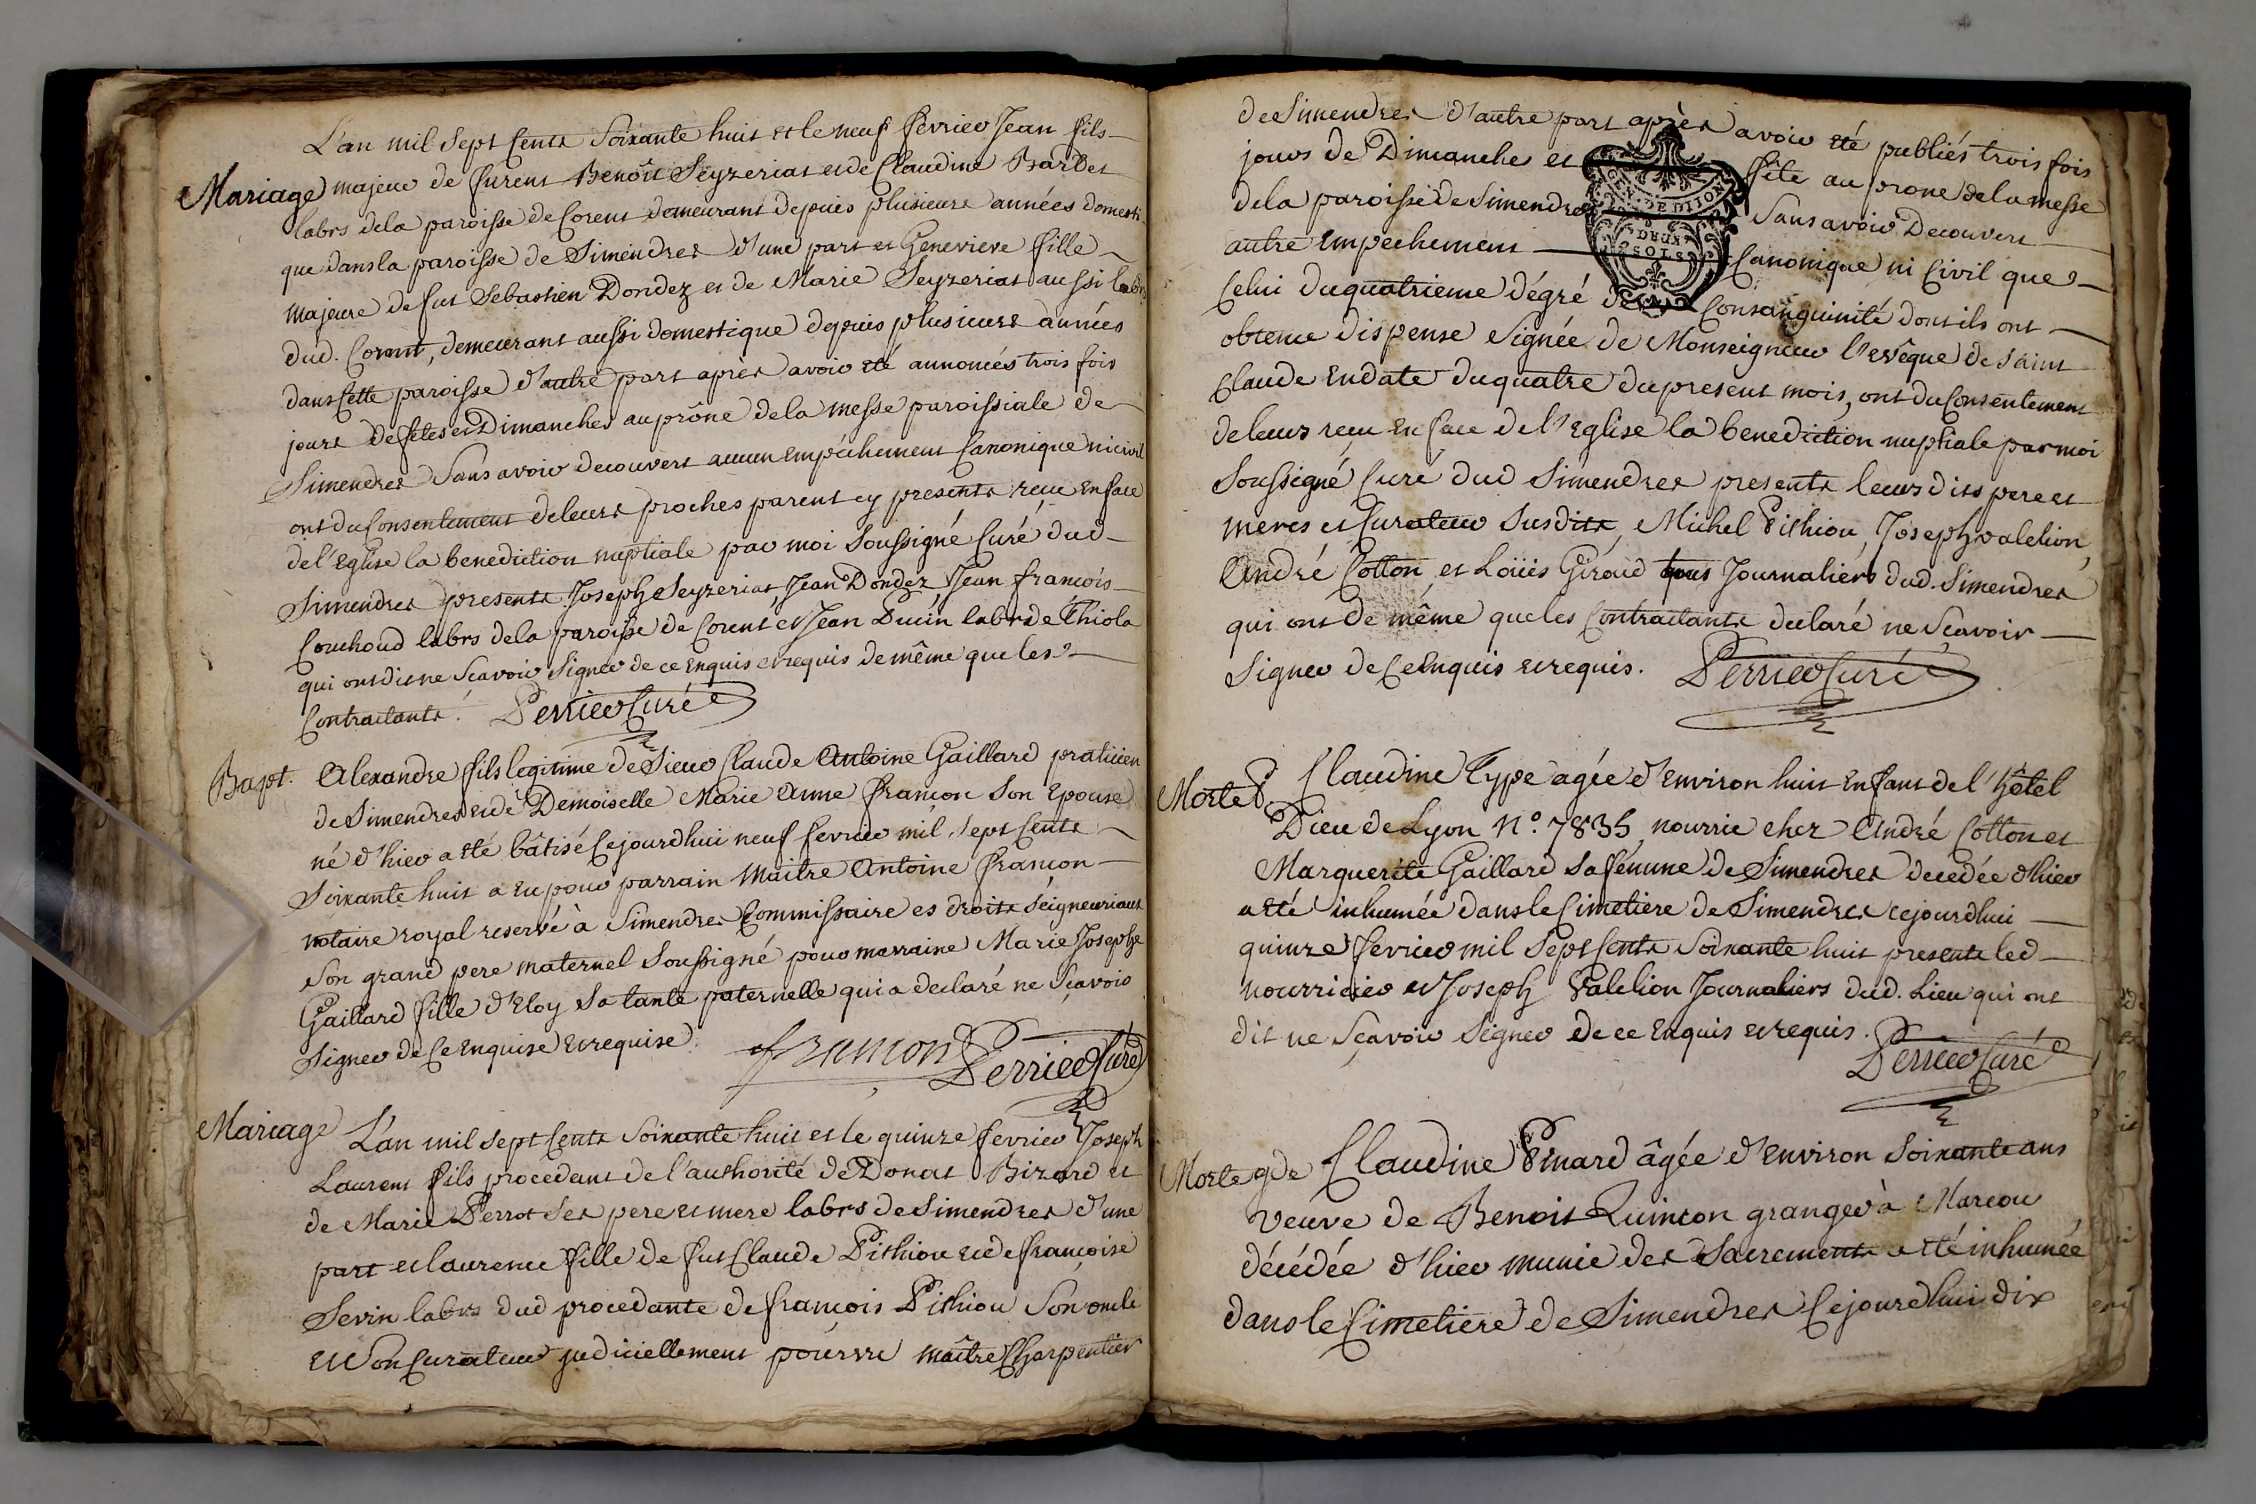 L'an mil sept cents soixante huit et le neuf fevrier Jean fils
Mariage majeur de furent Benoît Seyzeriat et de Claudine Barbet
labrs de la paroisse de Corent demeurant depuis plusieurs années domesti
que dans la paroisse de Simendres d'une part et Genevieve fille
majeure de fut Sebastien Dondez et de Marie Seyzeriat aussi labrs
dud. Corent, demeurant aussi domestique depuis plusieurs années
dans cette paroisse d'autre part après avoir été annoncés trois fois
jours de fetes et Dimanches au prône de la messe paroissiale de
Simendres sans avoir decouvert aucun empêchement canonique ni civil
ont du consentement de leurs proches parent cy presents recu en face
de l'Eglise la benediction nuptiale par moi soussigné Curé dud
Simendres presents Joseph Seyzeriat, Jean Dondez, Jean françois
Couhoud labrs de la paroisse de Corent et Jean Ducin labr de Thiola
qui ont dit ne scavoir signer de ce enquis et requis de même que les
Contractants. Perrier Curé
Bapt. Alexandre fils legitime de Sieur Claude Antoine Gaillard praticien
de Simendres et de Demoiselle Marie Anne françon son Epouse
né d'hier a été bâtisé cejourdhui neuf fevrier mil sept cents
soixante huit a eu pour parrain Maitre Antoine françon
notaire royal reservé à Simendres Commissaire es droits séigneuriaux
son grand pere maternel soussigné pour marraine Marie Josephe
Gaillard fille d'Eloy sa tante paternelle qui a declaré ne scavoir
signer de ce enquise et requise. françon Perrier Curé
Mariage L'an mil sept cents soixante huit et le quinze fevrier Joseph
Laurent fils procedant de l'authorité de Donat Bizard et
de Marie Perrot ses pere et mere labrs de Simendres d'une
part et laurence fille de fut Claude Pithiou et de françoise
Sevin labrs dud procedante de françois Pithiou son oncle
et son curateur judiciellement pourvu maître Charpentier
de Simendres d'autre part après avoir été publiés trois fois
jours de Dimanche et fête au prone de la messe
de la paroisse de Simendres sans avoir decouvert
autre empechement canonique ni civil que
celui du quatrieme dégré de Consanguinité dont ils ont
obtenu dispense signée de Monseigneur l'evêque de saint
Claude en date du quatre du present mois, ont du consentement
de leurs recu en face de l'Eglise la benediction nuptiale par moi
soussigné Curé dud Simendres presents leurs dits pere et
meres et Curateur susdits, Michel Pithiou, Joseph valelion,
André Cotton et Loüis Giraud tous Journaliers dud. Simendres
qui ont de même que les Contractants declaré ne scavoir
signer de ce enquis et requis. Perrier Curé
GEN. DE DIJON
Morte Claudine Type agée d'environ huit Enfant de l'hôtel
Dieu de Lyon N°. 7835 nourrie chez André Cotton et
Marguerite Gaillard sa femme de Simendres decedée d'hier
a été inhumée dans le Cimetiere de Simendres cejourdhui
quinze fevrier mil sept cents soixante huit presents led
nourricier et Joseph Valelion Journaliers dud. Lieu qui ont
dit ne sçavoir signer de ce enquis et requis.
Perrier Curé
Morte gde Claudine Pinard âgée d'environ soixante ans
veuve de Benoit Quinson granger à Marcou
décédée d'hier munie des Sacrements a été inhumée
dans le Cimetiere de Simendres cejourdhui dix